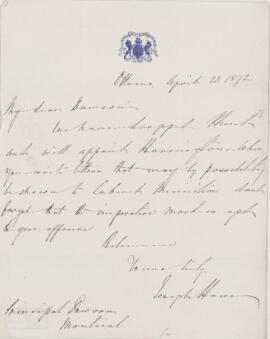 Ottawa April 23. 1872
My dear Dawson
We have dropped Hunt
and will appoint Harrington. When
you write letters that may by possibility
be shown to Cabinet Ministers dont
forget that the imperative mood is apt
to give offence
Believe me
Yours truly
Joseph Howe
Principal Dawson
Montreal